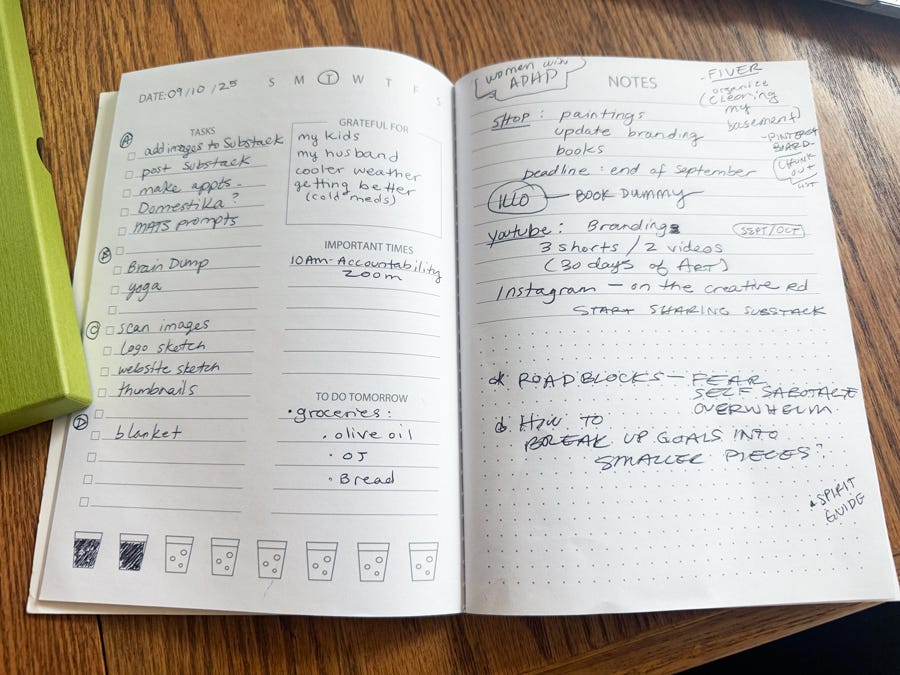 DATE: 09/10/25
S M T W T F S
TASKS
A
add images to Substack
post Substack
make appts.
Domestika?
MATS prompts
B
Brain Dump
yoga
C
scan images
logo sketch
website sketch
thumbnails
D
blanket
GRATEFUL FOR
my kids
my husband
cooler weather
getting better
(cold meds)
IMPORTANT TIMES
10Am-Accountability
zoom
TO DO TOMORROW
• groceries:
• olive oil
• OJ
• Bread
women with
ADHD
NOTES
- FIVER
organize
(cleaning
my
basement)
- PINTEREST
BOARD -
CHUNK
OUT
LIST
SHOP: paintings
update branding
books
Deadline: end of September
ILLO — BOOK DUMMY
youtube: Brandings
SEPT/OCT
3 shorts / 2 videos
(30 days of ART)
Instagram — on the creative
START SHARING SUBSTACK
ROADBLOCKS — FEAR
SELF SABOTAGE
OVERWHELM
HOW TO
BREAK UP GOALS INTO
SMALLER PIECES?
• SPIRIT
GUIDE